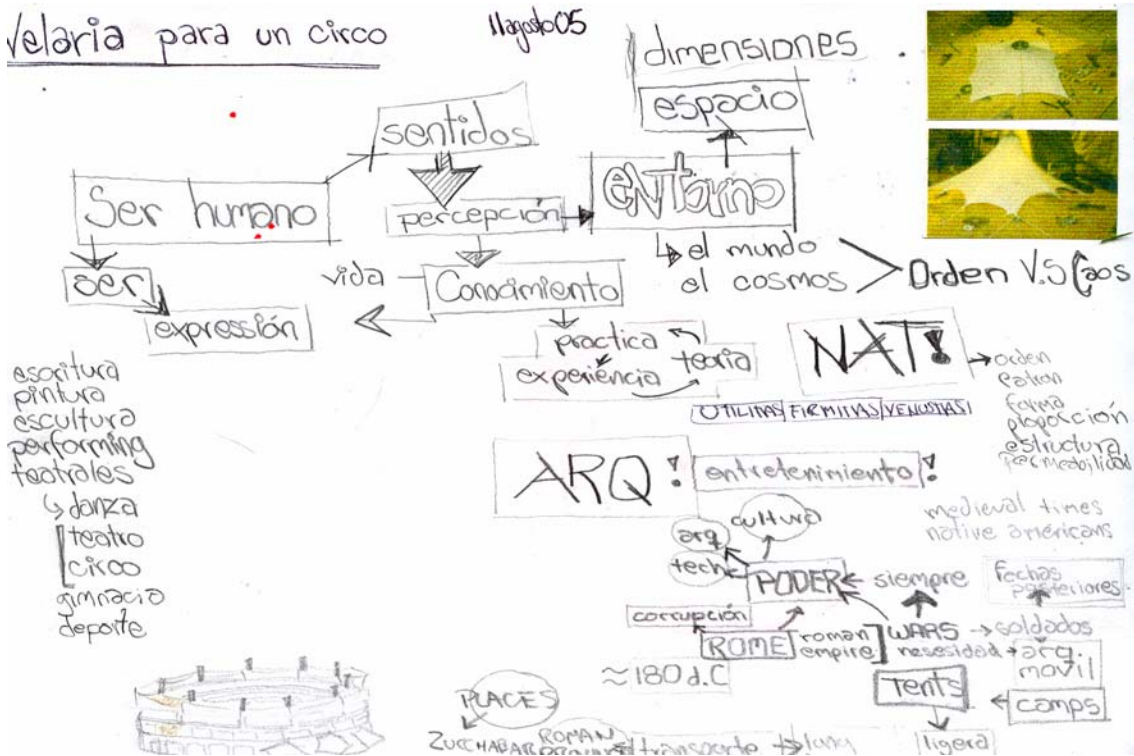 Velaria para un circo
11agosto05
dimensiones
espacio
sentidos
Ser humano
percepción
ENTorno
el mundo
el cosmos
Orden V.S Caos
ser
vida
Conocimiento
expressión
practica
teoria
experiencia
NAT!
orden
patron
forma
proporción
estructura
permeabilidad
UTILITAS FIRMITAS VENUSTAS
escritura
pintura
escultura
performing
teatrales
danza
teatro
circo
gimnacia
deporte
ARQ!
entretenimiento!
medieval times
native americans
cultura
arq
tech
PODER
siempre
fechas
posteriores
corrupción
ROME
roman
empire
WARS
soldados
nesesidad
arq.
movil
≈180 d.C
Tents
camps
PLACES
ZUCCHABAR
ROMAN
transporte
ligera